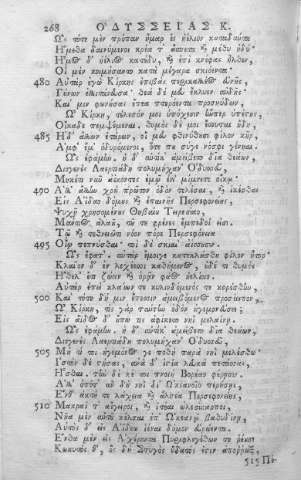 268 ὈΔΥΣΣΕΙΑΣ Κ.
Ὣς τότε μὲν πρόπαν ἦμαρ ἐς ἠέλιον καταδύντα
Ἥμεθα δαινύμενοι κρέα τ' ἄσπετα καὶ μέθυ ἡδύ·
Ἦμος δ' ἠέλιος κατέδυ, καὶ ἐπὶ κνέφας ἦλθεν,
Οἱ μὲν κοιμήσαντο κατὰ μέγαρα σκιόεντα·
480 Αὐτὰρ ἐγὼ Κίρκης ἐπιβὰς περικαλλέος εὐνῆς,
Γούνων ἐλλιτάνευσα· θεὰ δέ μευ ἔκλυεν αὐδῆς·
Καί μιν φωνήσας ἔπεα πτερόεντα προσηύδων·
Ὦ Κίρκη, τέλεσόν μοι ὑπόσχεσιν ἥνπερ ὑπέστης,
Οἴκαδε πεμψέμεναι· θυμὸς δέ μοι ἔσσυται ἤδη,
485 Ἠδ' ἄλλων ἑτάρων, οἵ μευ φθινύθουσι φίλον κῆρ,
Ἀμφ' ἔμ' ὀδυρόμενοι, ὅτε που σύγε νόσφι γένηαι.
Ὣς ἐφάμην, ἡ δ' αὐτίκ' ἀμείβετο δῖα θεάων,
Διογενὲς Λαερτιάδη πολυμήχαν' Ὀδυσσεῦ,
Μηκέτι νῦν ἀέκοντες ἐμῷ ἐνὶ μίμνετε οἴκῳ·
490 Ἀλλ' ἄλλην χρὴ πρῶτον ὁδὸν τελέσαι, καὶ ἱκέσθαι
Εἰς Ἀΐδαο δόμους καὶ ἐπαινῆς Περσεφονείης,
Ψυχῇ χρησομένους Θηβαίου Τειρεσίαο,
Μάντιος ἀλαοῦ, τοῦ τε φρένες ἔμπεδοί εἰσι.
Τῷ καὶ τεθνειῶτι νόον πόρε Περσεφόνεια
495 Οἴῳ πεπνύσθαι· τοὶ δὲ σκιαὶ ἀΐσσουσιν.
Ὣς ἔφατ'· αὐτὰρ ἔμοιγε κατεκλάσθη φίλον ἦτορ·
Κλαῖον δ' ἐν λεχέεσσι καθήμενος, οὐδέ τι θυμὸς
Ἤθελ' ἔτι ζώειν καὶ ὁρᾷν φάος ἠελίοιο.
Αὐτὰρ ἐπεὶ κλαίων τε κυλινδόμενός τε κορέσθην,
500 Καὶ τότε δή μιν ἔπεσσιν ἀμειβόμενος προσέειπον·
Ὦ Κίρκη, τίς γὰρ ταύτην ὁδὸν ἡγεμονεύσει;
Εἰς ἄϊδος δ' οὔπω τις ἀφίκετο νηῒ μελαίνῃ.
Ὣς ἐφάμην, ἡ δ' αὐτίκ' ἀμείβετο δῖα θεάων,
Διογενὲς Λαερτιάδη πολυμήχαν' Ὀδυσσεῦ,
505 Μή τί τοι ἡγεμόνος γε ποθὴ παρὰ νηῒ μελέσθω·
Ἱστὸν δὲ στήσας, ἀνά θ' ἱστία λευκὰ πετάσσας,
Ἧσθαι. τὴν δέ κέ τοι πνοιὴ Βορέαο φέρῃσιν.
Ἀλλ' ὁπότ' ἂν δὴ νηῒ δι' Ὠκεανοῖο περήσῃς,
Ἔνθ' ἀκτή τε λάχεια καὶ ἄλσεα Περσεφονείης,
510 Μακραί τ' αἴγειροι, καὶ ἰτέαι ὠλεσίκαρποι,
Νῆα μὲν αὐτοῦ κέλσαι ἐπ' Ὠκεανῷ βαθυδίνῃ,
Αὐτὸς δ' εἰς Ἀΐδεω ἰέναι δόμον εὐρώεντα.
Ἔνθα μὲν εἰς Ἀχέροντα Πυριφλεγέθων τε ῥέουσι
Κωκυτός θ', ὃς δὴ Στυγὸς ὕδατός ἐστιν ἀπορρώξ,
515 Πέ-